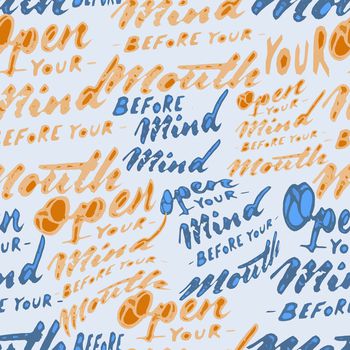 Open
YOUR
BEFORE YOUR
YOUR
Mind
Mouth
BEFORE
Open
BEFORE YOUR
Mind
YOUR
Mouth
Mind
Mind
Open
YOUR
Open
YOUR
Mind
Open
Mind
BEFORE YOUR
BEFORE YOUR
Mind
BEFORE YOUR
Mouth
Mouth
Mind
Open
YOUR
BEFORE